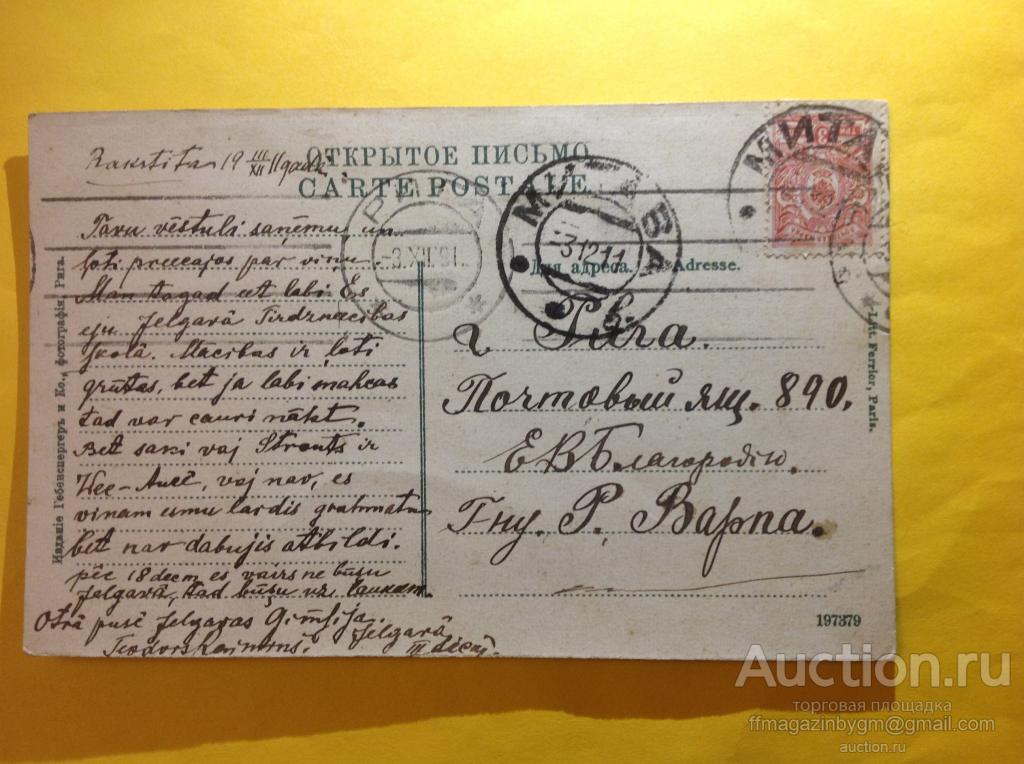 Rakstīta 19 III/XII 11 gadā
ОТКРЫТОЕ ПИСЬМО.
CARTE POSTALE.
МИТАВА
РИГА
-3.XII.91
МИТАВА
-3 12 11
Для адреса. — Adresse.
Tavu vēstuli saņēmu un
ļoti preecajos par viņu
Man tagad eet labi. Es
eju Jelgavā Tirdzniecibas
skolā. Macibas ir ļoti
grūtas, bet ja labi mahcas
tad var cauri nākt.
Bet saki vaj Strauts ir
Wec-Aucē, vaj nav, es
viņam esmu lardis grahmatu
bet nav dabujis atbildi.
pēc 18 decm es vairs ne būšu
Jelgavā, tad būšu uz laukam.
Otrā pusē Jelgavas Gimsija
Jelgavā
III decm.
г. Рига.
Почтовый ящ. 890.
ЕВБлагородiю.
Гну. Р. Варпа.
Изданiе Гебенспергеръ и Ко., фотографiя, Рига.
Ferrier, Paris.
197379
Auction.ru
торговая площадка
ffmagazinbygm@gmail.com
auction.ru